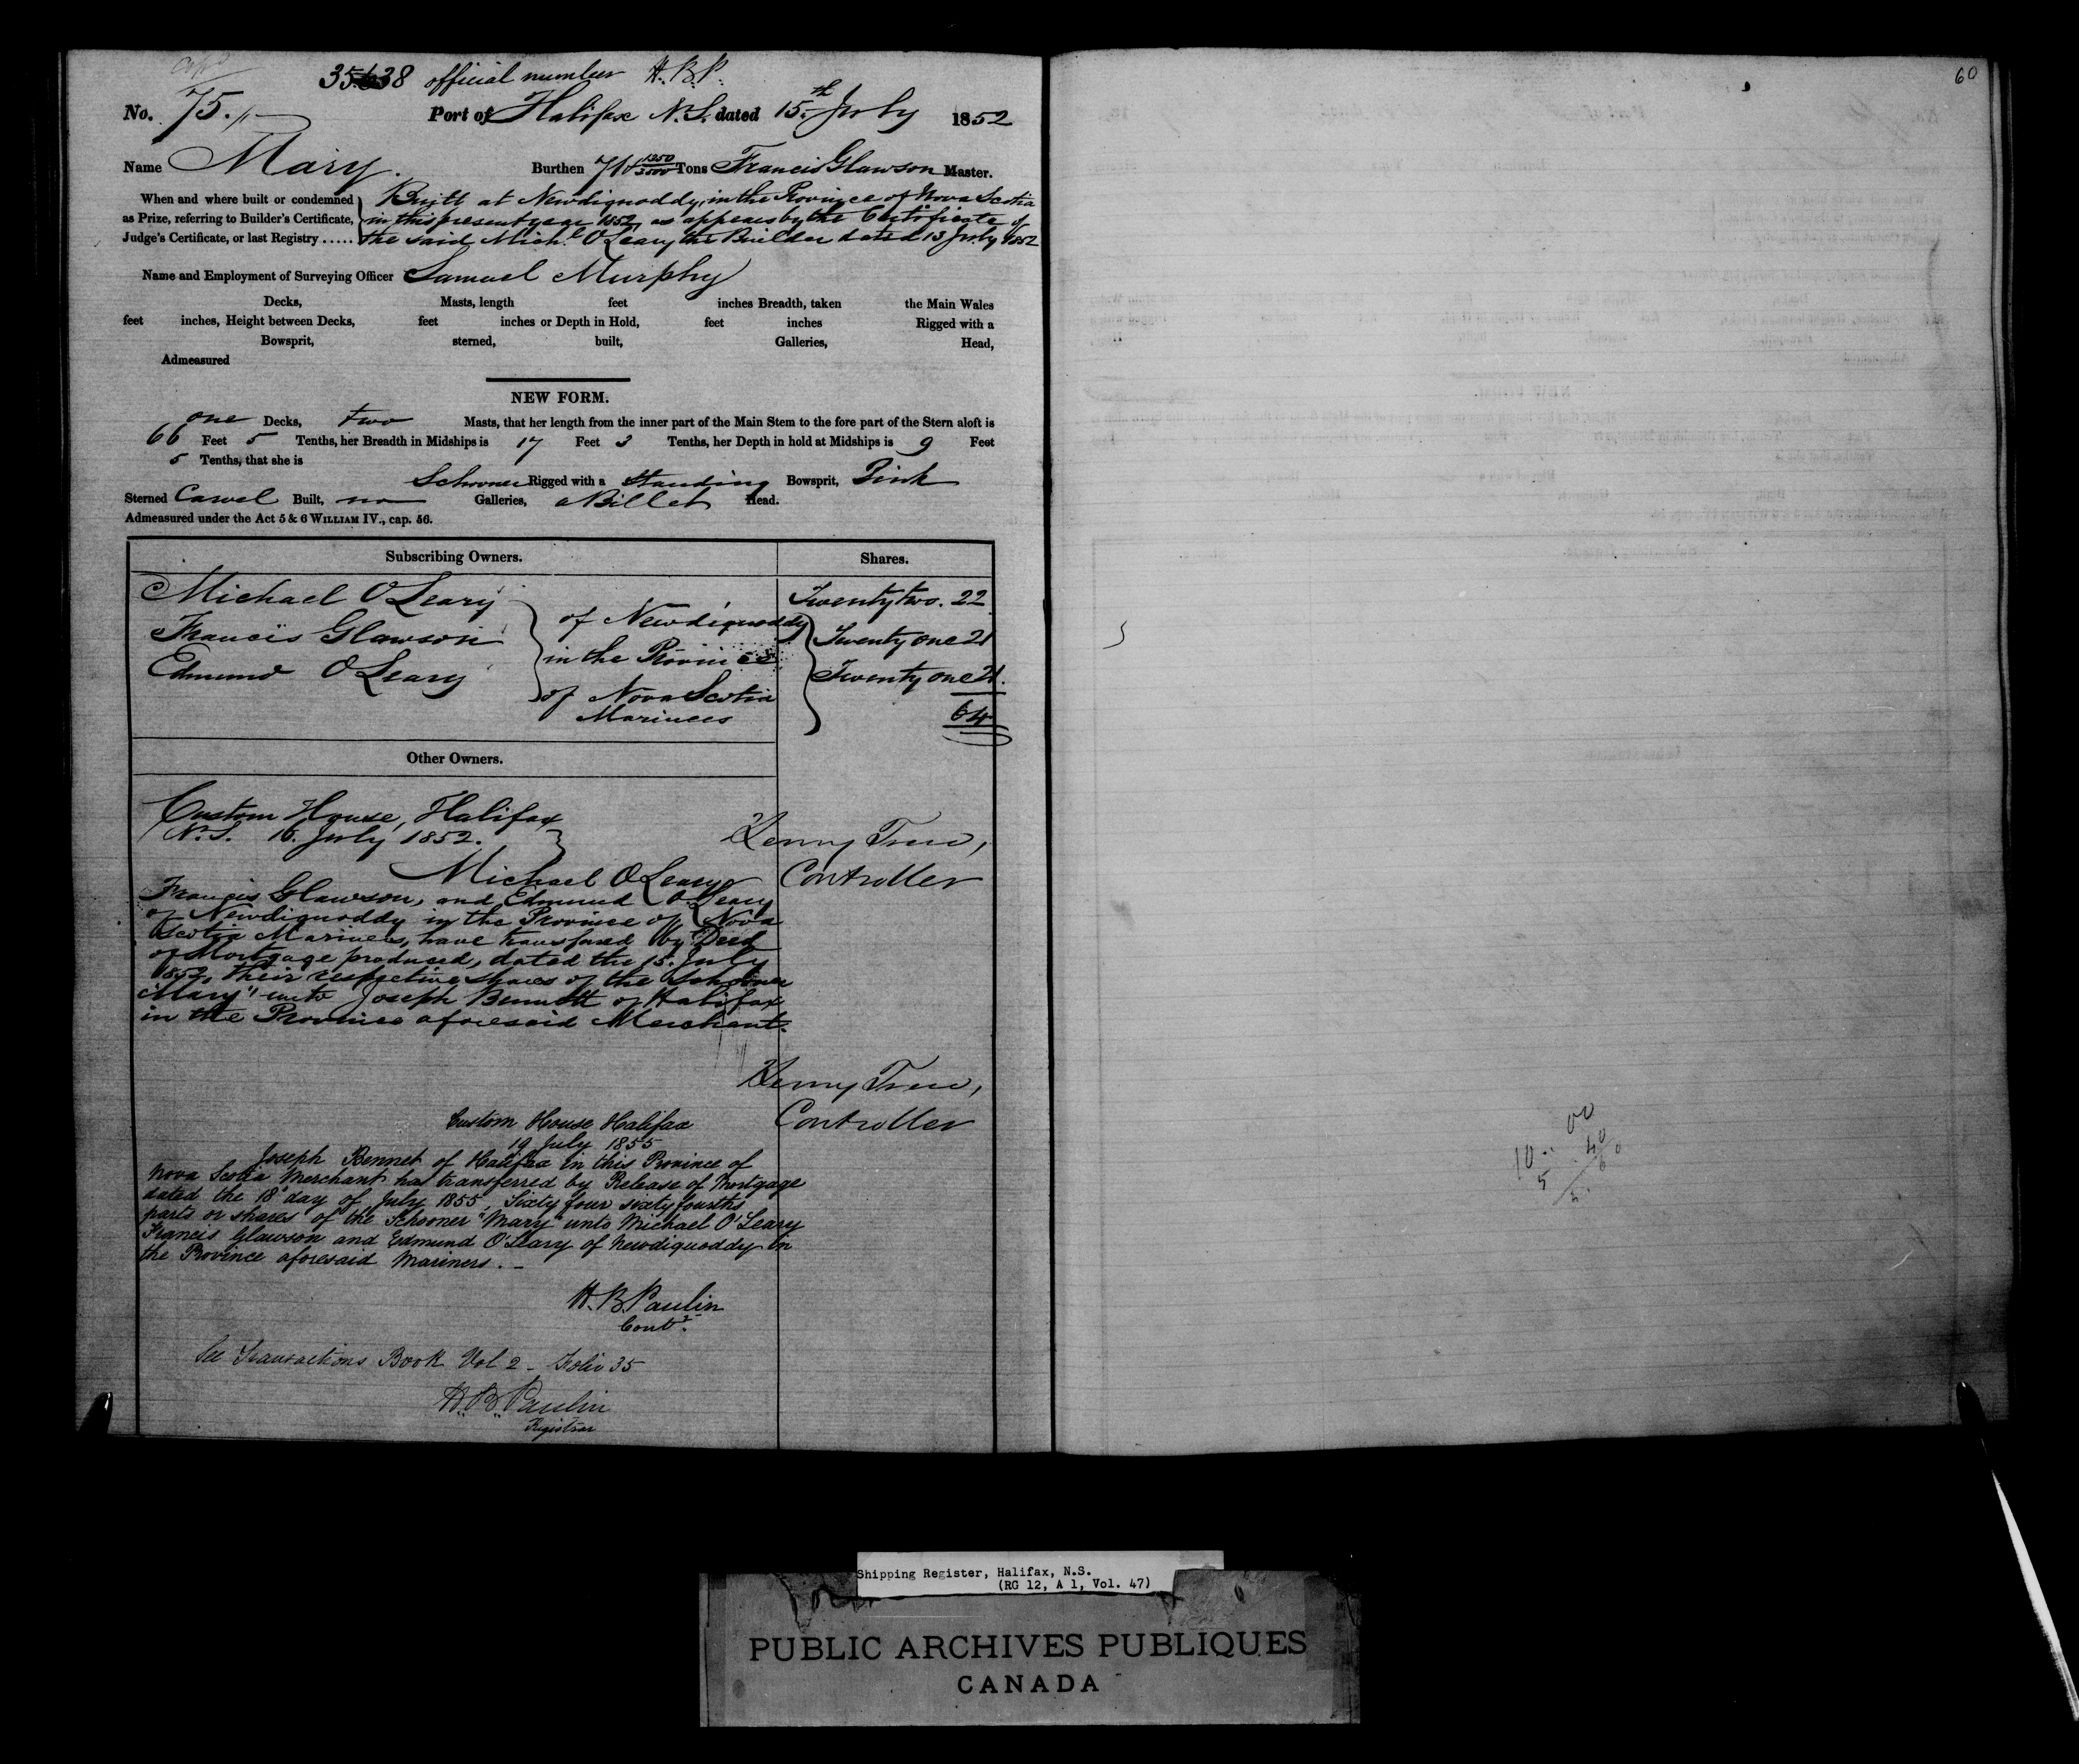 35638 official number H.B.P.
No. 75. Port of Halifax N.S. dated 15th July 1852
Name Mary. Burthen 71 1250/3500 Tons Francis Glawson Master.
When and where built or condemned as Prize, referring to Builder's Certificate, Judge's Certificate, or last Registry .....
Built at Newdiquoddy in the Province of Nova Scotia
in this present year 1852, as appears by the Certificate of
the said Michl. O'Leary the Builder dated 13 July 1852
Name and Employment of Surveying Officer Samuel Murphy
Decks, Masts, length feet inches Breadth, taken the Main Wales
feet inches, Height between Decks, feet inches or Depth in Hold, feet inches Rigged with a
Bowsprit, sterned, built, Galleries, Head,
Admeasured
NEW FORM.
one Decks, two Masts, that her length from the inner part of the Main Stem to the fore part of the Stern aloft is
66 Feet 5 Tenths, her Breadth in Midships is 17 Feet 3 Tenths, her Depth in hold at Midships is 9 Feet
5 Tenths, that she is
Schooner Rigged with a Standing Bowsprit, Pink
Sterned Carvel Built, no Galleries, a Billet Head.
Admeasured under the Act 5 & 6 WILLIAM IV., cap. 56.
Subscribing Owners. Shares.
Michael O'Leary Twenty two. 22
Francis Glawson Twenty one 21
Edmund O'Leary Twenty one 21.
of Newdiquoddy
in the Province
of Nova Scotia
Mariners
64
Other Owners.
Custom House, Halifax
N.S. 16 July 1852.
Henry Trew,
Controller
Michael O'Leary
Francis Glawson, and Edmund O'Leary
of Newdiquoddy in the Province of Nova
Scotia Mariners, have transfered by Deed
of Mortgage produced, dated the 15. July
1852, their respective shares of the Schooner
"Mary" unto Joseph Bennett of Halifax
in the Province aforesaid Merchant.
Henry Trew,
Controller
Custom House Halifax
19 July 1855
Joseph Bennet of Halifax in this Province of
Nova Scotia Merchant has transferred by Release of Mortgage
dated the 18 day of July 1855, Sixty four sixty fourths
parts or shares of the Schooner "Mary" unto Michael O'Leary
Francis Glawson and Edmund O'Leary of Newdiquoddy in
the Province aforesaid Mariners. _
H. B. Paulin
Contr.
See Transactions Book Vol 2 - Folio 35
H. B. Paulin
Registrar
60
Shipping Register, Halifax, N.S.
(RG 12, A 1, Vol. 47)
PUBLIC ARCHIVES PUBLIQUES
CANADA